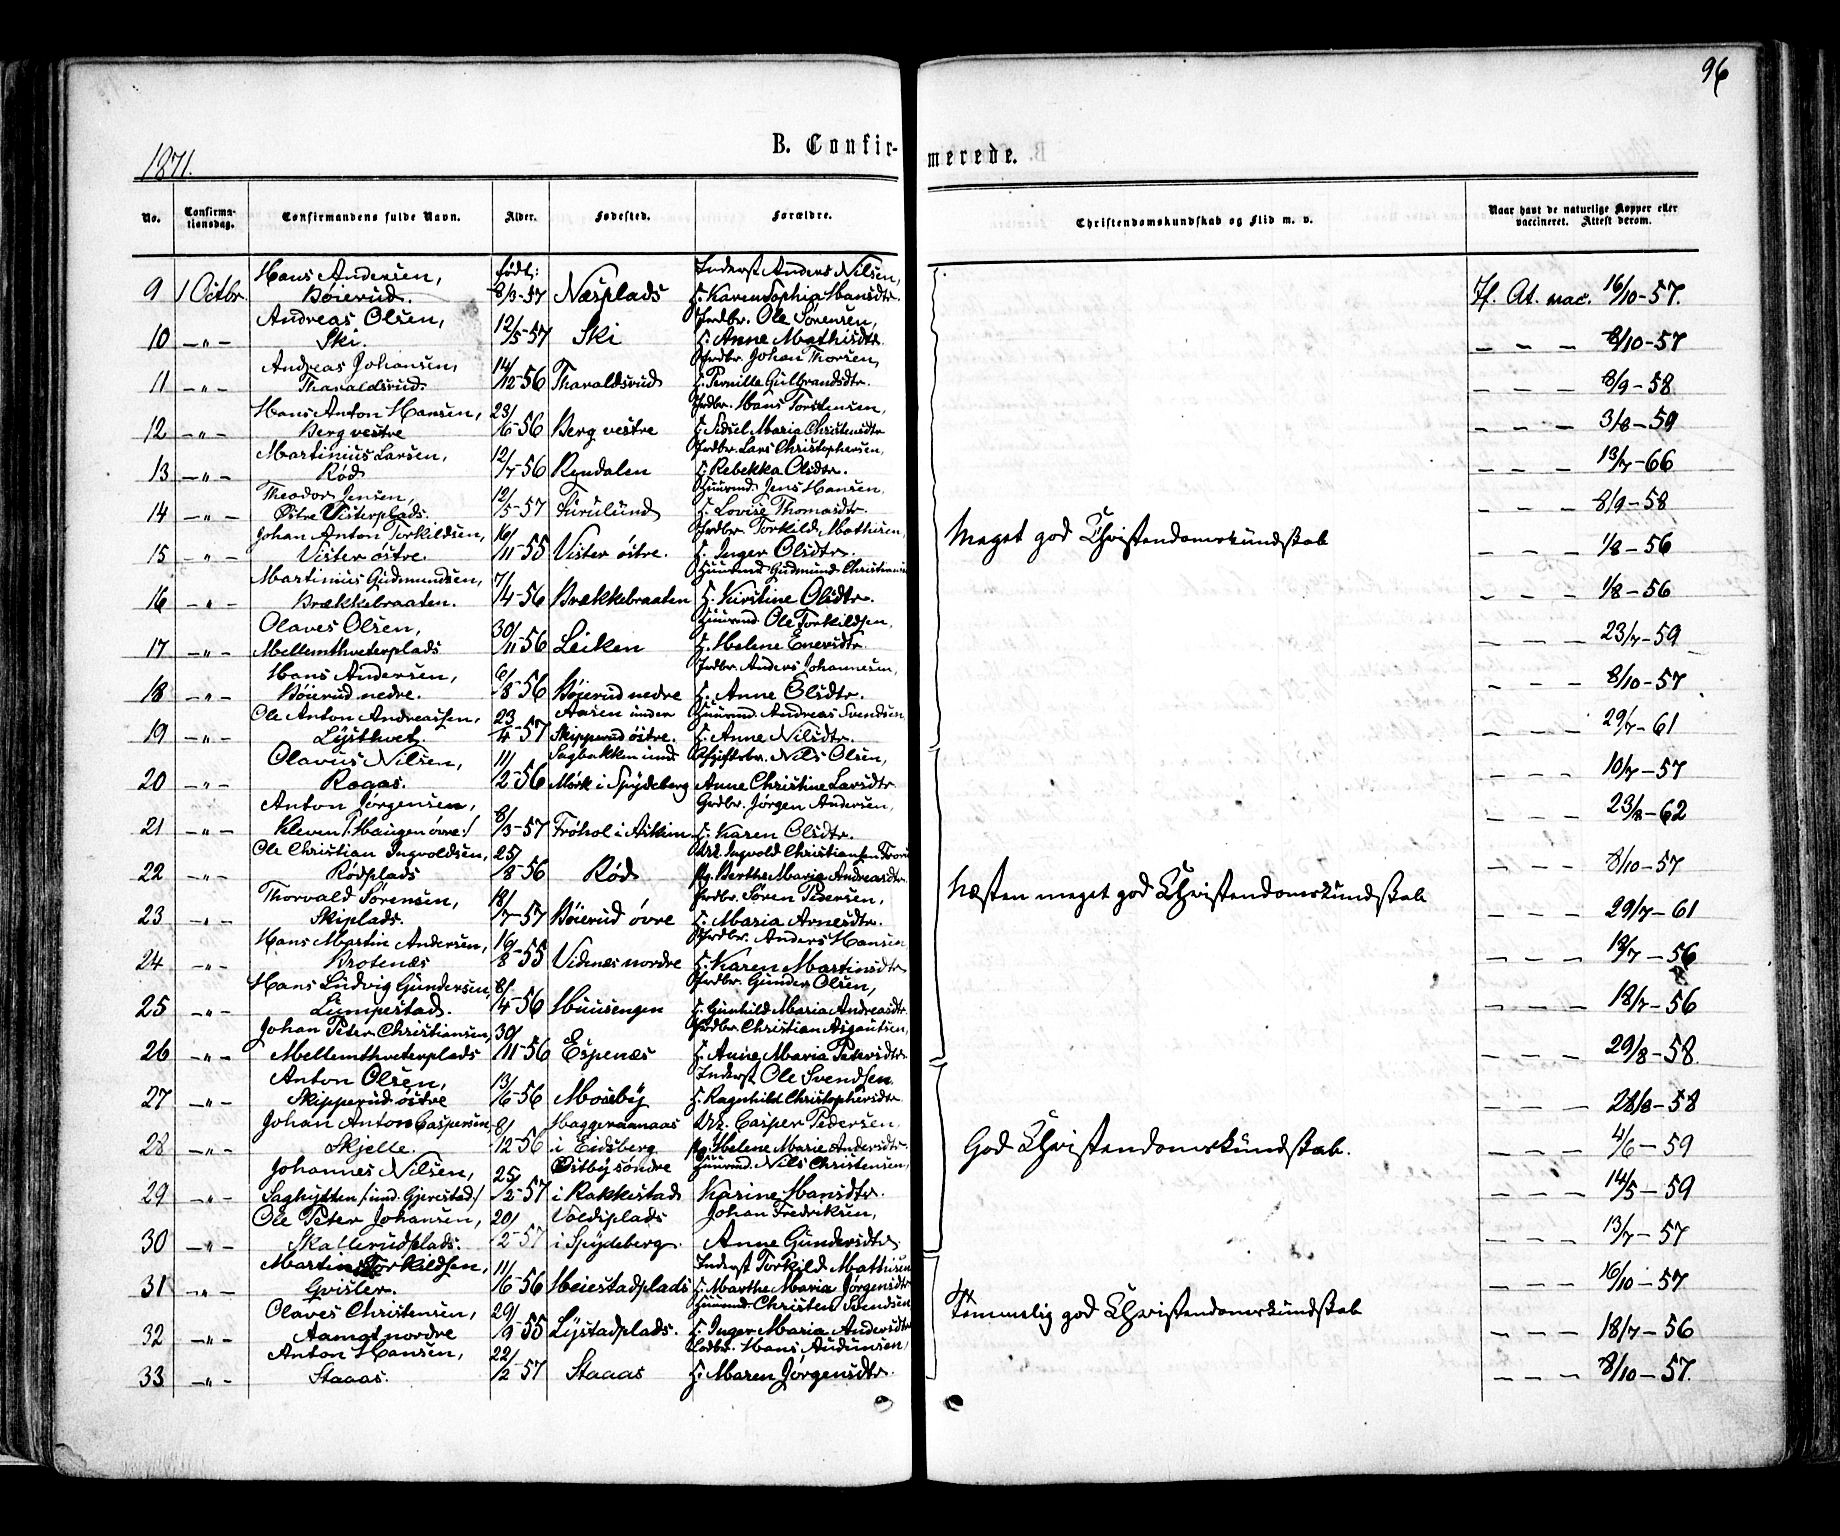 96
1871.
B. Confirmerede.
No. Confirmationsdag. Confirmandens fulde Navn. Alder. Fødested. Forældre. Christendomskundskab og Flid m. v. Naar havt de naturlige Kopper eller vaccineret. Attest derom.
Hans Andersen, født: Inderst Anders Nilsen,
9 1 Octbr. Bøierud. 8/3-57 Næsplads H. Karen Sophia Hansdtr. If. At. vac. 16/10-57.
Andreas Olsen, Grdbr. Ole Sørensen,
10 —„— Ski. 12/5-57 Ski H. Anne Mathisdtr. — — — 8/10-57
Andreas Johansen, Grdbr. Johan Thorsen,
11 —„— Tharaldsrud. 14/12-56 Tharaldsrud H. Pernille Gulbrandsdtr. — — — 8/9-58
Hans Anton Hansen, Grdbr. Hans Torstensen,
12 —„— Berg vestre 23/6-56 Berg vestre H. Sidsel Maria Christensdtr — — — 3/8-59
Martinius Larsen, Grdbr. Lars Christophersen,
13 —„— Rød 12/7-56 Rendalen H. Rebekka Olsdtr. — — — 13/7-66
Theodor Jensen, Huusmd. Jens Hansen,
14 —„— Østre Visterplads. 12/5-57 Furulund H. Lovise Thomasdtr. — — — 8/9-58
Johan Anton Torkildsen, Grdbr. Torkild Mathisen,
15 —„— Vister østre. 10/11-55 Vister østre. H. Inger Olsdtr. Meget god Christendomskundskab — — — 1/8-56
Martinius Gudmundsen, Huusmd Gudmund
16 —„— Brækkebraaten. 7/4-56 Brækkebraaten H. Kirstine Olsdtr. — — — 1/8-56
Olaves Olsen, Huusmd Ole Torkildsen,
17 —„— Mellemthveterplads 30/11-56 Leiken H. Helene Enersdtr. — — — 23/7-59
Hans Andersen, Grdbr. Anders Johannesen,
18 —„— Bøierud nedre. 6/8-56 Bøierud nedre H. Anne Olsdtr. — — — 8/10-57
Ole Anton Andreassen, Aasen under Huusmd. Andreas Svendsen,
19 —„— Lysthvet. 23/4-57 Skipperud østre. H. Anne Nilsdtr. — — — 29/7-61
Olavus Nilsen, Sagbakken und Nils Olsen,
20 —„— Rogas. 11/2-56 Mørk i Spydeberg Anne Christine Larsdtr. — — — 10/7-57
Anton Jørgensen, Grdbr. Jørgen Andersen,
21 —„— Kleven /:Haugen øvre:/ 8/3-57 Frøhol i Askim H. Karen Olsdtr. — — — 23/8-62
Ole Christian Ingvoldsen, Uk. Ingvold Christiansen
22 —„— Rødplads 25/8-56 Rød Pg. Berthe Maria Andreasdtr. Næsten meget god Christendomskundskab — — — 8/10-57
Thorvald Sørensen, Grdbr. Søren Pedersen,
23 —„— Skiplads. 18/7-57 Bøierud øvre H. Maria Arnesdtr. — — — 29/7-61
Hans Martin Andersen, Grdbr. Anders Hansen
24 —„— Krotenæs 16/8-55 Vidnæs nordre H. Karen Martinsdtr — — — 18/7-56
Hans Ludvig Gundersen, Grdbr. Gunder Olsen,
25 —„— Lumpestad. 8/4-56 Huusengen H. Gunhild Maria Andreasdtr — — — 18/7-56
Johan Peter Christiansen, Grdbr Christian Asgautsen,
26 —„— Mellemthveterplads 30/11-56 Espenæs H. Anne Maria Petersdtr. — — — 29/8-58.
Anton Olsen, Inderst Ole Svendsen,
27 —„— Skipperud østre 13/6-56 Mosby H. Ragnhild Christophersdtr — — — 28/8-58
Johan Anton Caspersen, Haggeraanaas Uk. Casper Pedersen,
28 —„— Skjelle. 8/12-56 i Eidsberg Pg. Helene Marie Andersdtr. God Christendomskundskab. — — — 4/6-59
Johannes Nilsen, Østby søndre Huusmd. Nils Christensen,
29 —„— Saghytten /:und. Gjerestad:/ 25/2-57 i Rakkestad Karine Hansdtr. — — — 14/5-59
Ole Peter Johansen, Voldsplads Johan Fredriksen,
30 —„— Skallerudplads. 20/2-57 i Spydeberg. Anne Gundersdtr. — — — 13/7-57
Martin Torkildsen, Inderst Torkild Mathisen
31 —„— Gvisler. 11/6-56 Heiestadplads H. Marthe Maria Jørgensdtr — — — 16/10-57
Olaves Christensen, Huusmd. Christen Svendsen Temmelig god Christendomskundskab
32 —„— Aamot nordre 29/9-55 Lystadplads. H. Inger Maria Andersdtr — — — 18/7-56
Anton Hansen, Hans Audunsen,
33 —„— Staaas. 22/2-57 Staaas H. Maren Jørgensdtr. — — — 8/10-57.